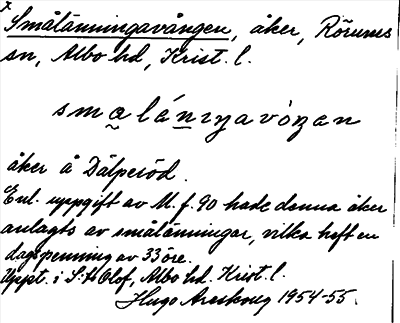 x
Smålänningavången, åker, Rörums
sn, Albo hd, Krist. l.
smalánıŋavóŋan
åker å Dälperöd.
Enl. uppgift av M. f. 90 hade denna åker
anlagts av smålänningar, vilka haft en
dagspenning av 33 öre.
Uppt. i S:t Olof, Albo hd. Krist. l.
Hugo Areskoug 1954-55.